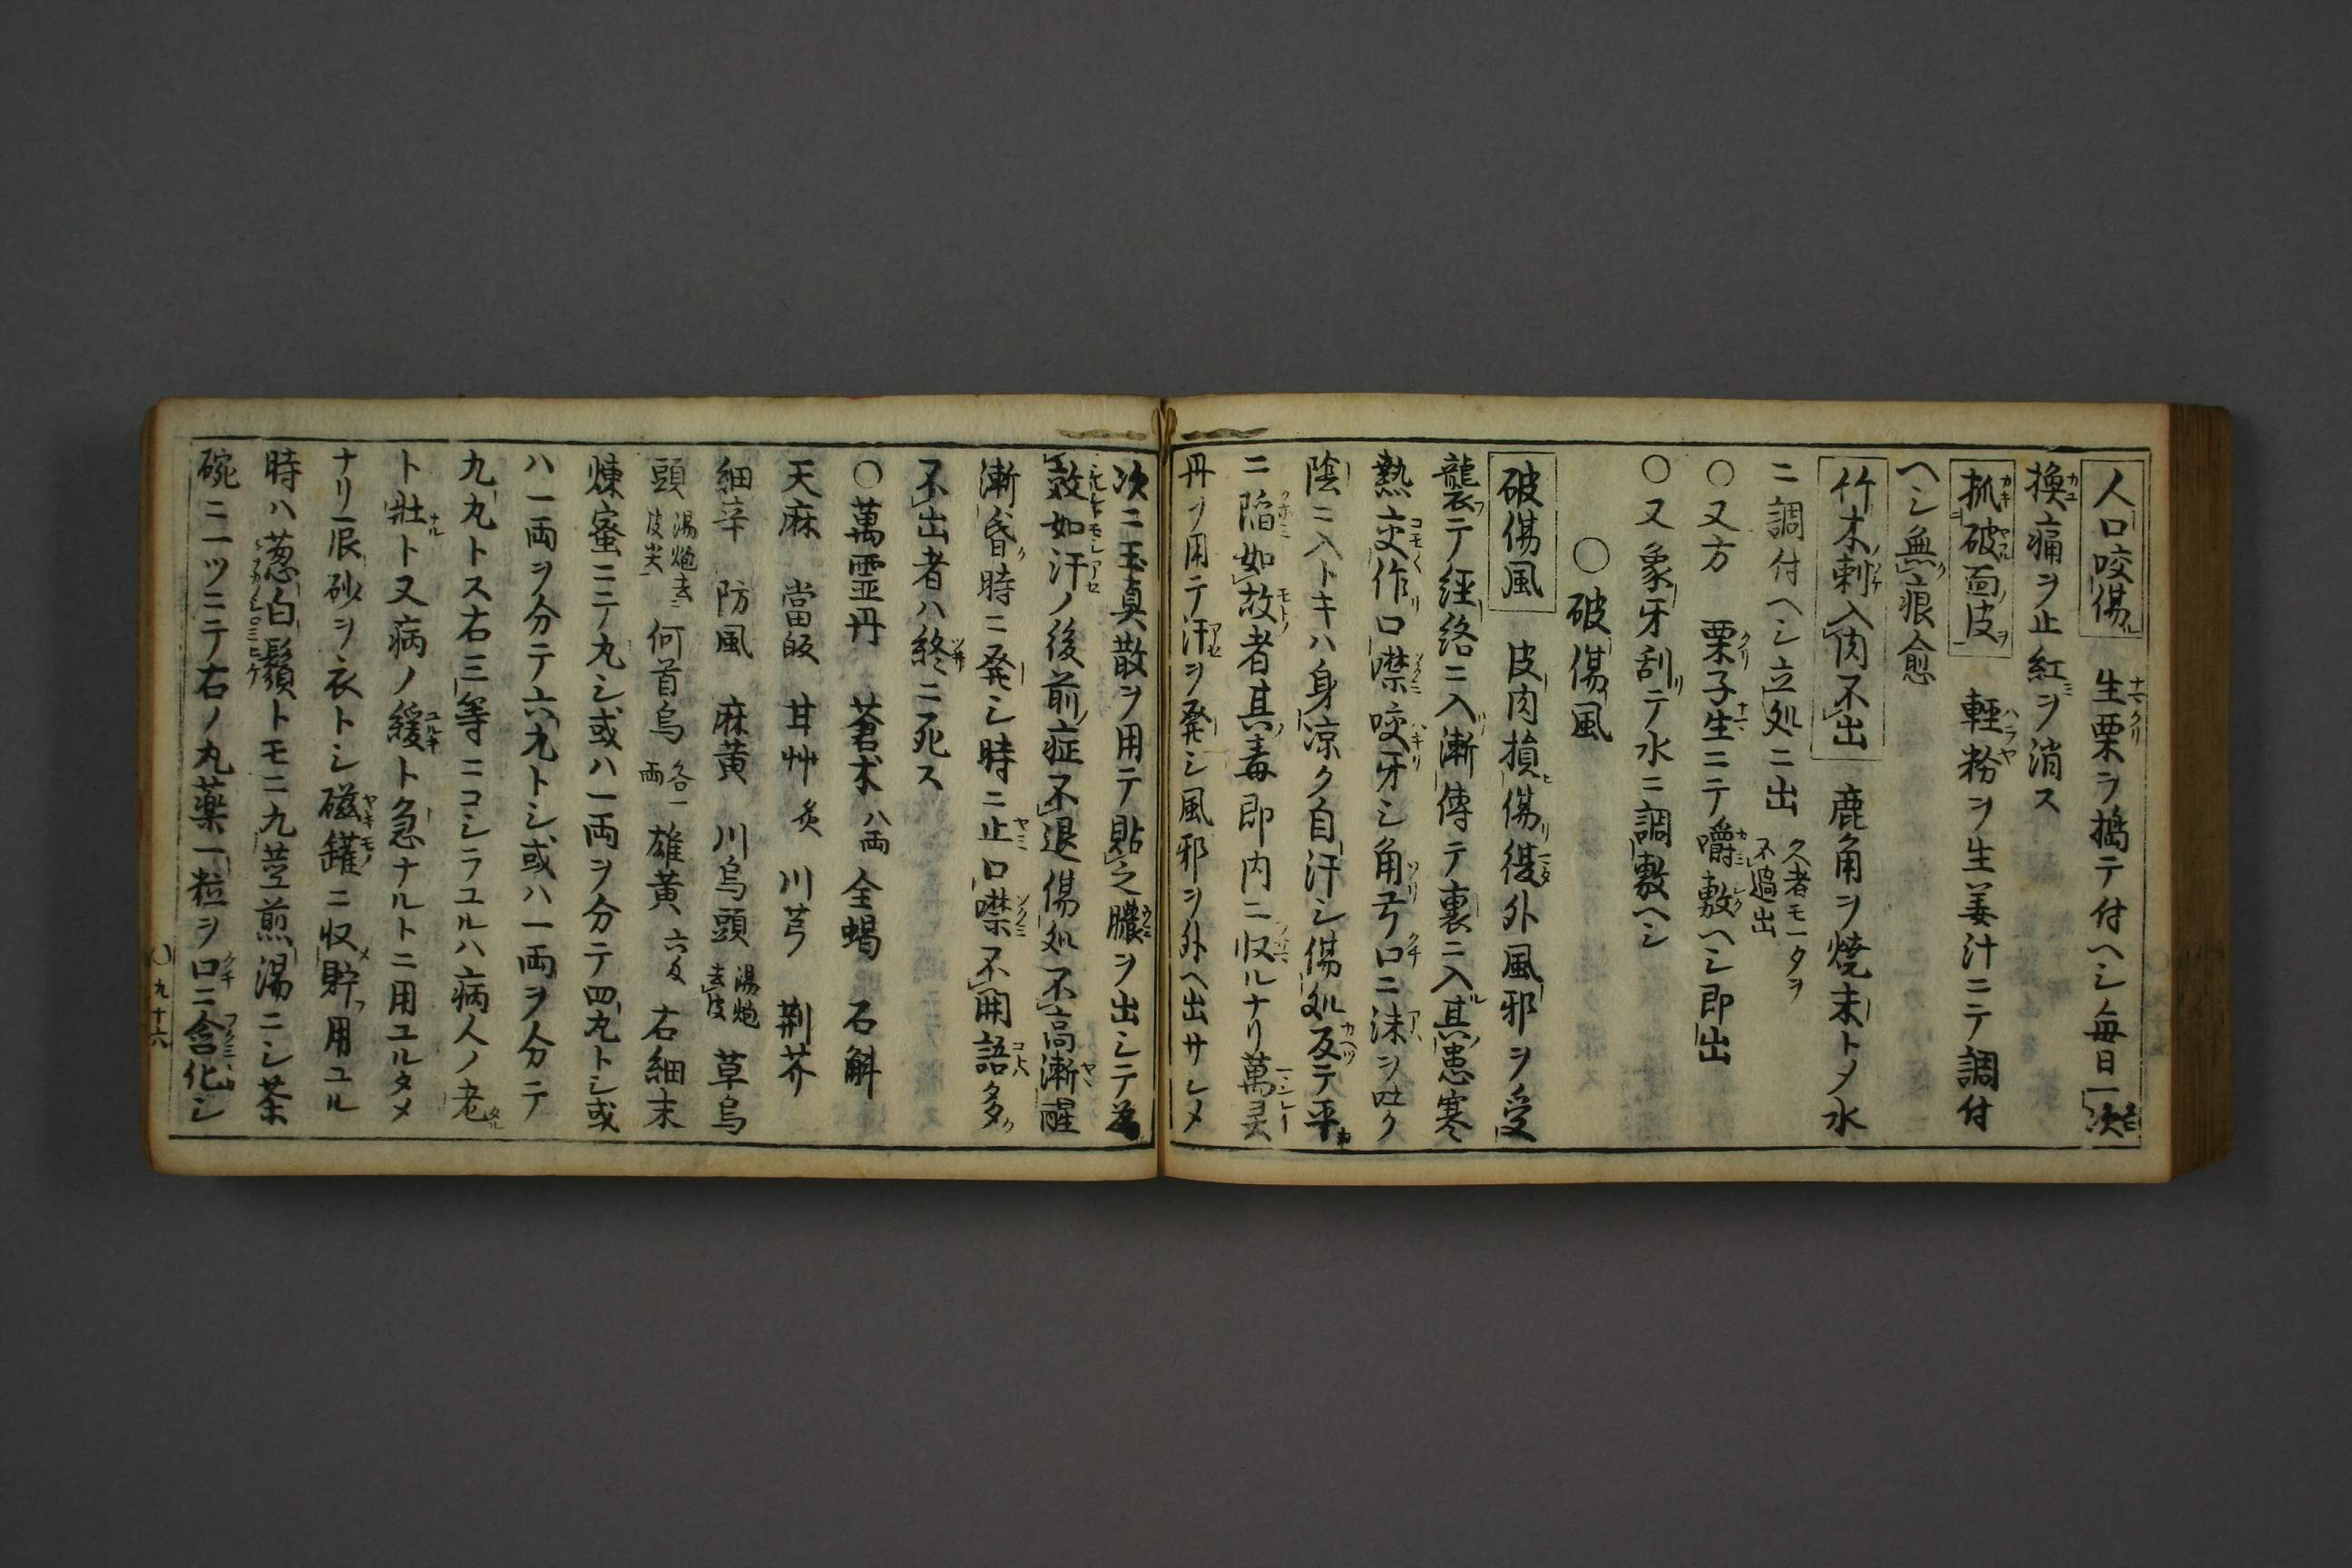 人口咬傷 生栗ヲ搗テ付ヘシ毎日一次
換痛ヲ止紅ヲ消ス
抓破面皮 軽粉ヲ生姜汁ニテ調付
ヘシ無痕愈
竹木刺入肉不出 鹿角ヲ焼末トメ水
ニ調付ヘシ立処ニ出 久者モ一夕ヲ不過出
〇又方 栗子生ニテ嚼敷ヘシ即出
〇又象牙刮テ水ニ調敷ヘシ
〇破傷風
破傷風 皮肉損傷復外風邪ヲ受
襲テ経絡ニ入漸傳テ裏ニ入其患寒
熱交作口噤咬牙シ角弓口ニ沫ヲ吐ク
陰ニ入トキハ身凉ク自汗シ傷処反テ平
ニ陥如故者其毒即内ニ収ルナリ萬灵
丹ヲ用テ汗ヲ発シ風邪ヲ外ヘ出サレメ
次ニ玉真散ヲ用テ貼之膿ヲ出シテ為
效如汗ノ後前症不退傷処不高漸醒
漸昏時ニ発シ時ニ止口噤不開語多ク
不出者ハ終ニ死ス
〇萬霊丹 蒼朮 八両 全蝎 石斛
天麻 當皈 甘艸 炙 川芎 荆芥
細辛 防風 麻黄 川烏頭 湯炮去皮 草烏
頭 湯炮去皮尖 何首烏 各一両 雄黄 六匁 右細末
煉蜜ニテ丸シ或ハ一両ヲ分テ四丸トシ或
ハ一両ヲ分テ六丸トシ或ハ一両ヲ分テ
九丸トス右三等ニコシラユルハ病人ノ老
ト壯ト又病ノ緩ト急ナルトニ用ユルタメ
ナリ辰砂ヲ衣トシ磁罐ニ収貯用ユル
時ハ葱白鬚トモニ九茎煎湯ニシ茶
碗ニ一ツニテ右ノ丸薬一粒ヲ口ニ含化シ
〇九十六